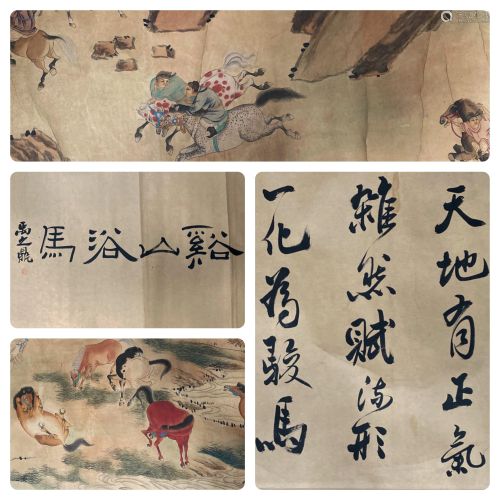 谿山浴馬
禹之鼎
天地有正氣
雜然賦流形
一化為駿馬